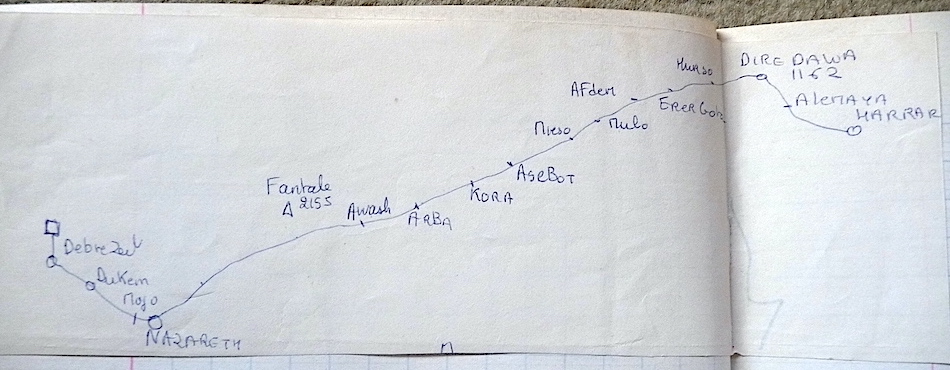 Debre Zeit
Dukem
Mojo
NAZARETH
Fantale
2155
Awash
ARBA
KORA
ASEBOT
Mieso
Mulo
AFdem
Hurso
DIRE DAWA
1162
ALEMAYA
HARRAR